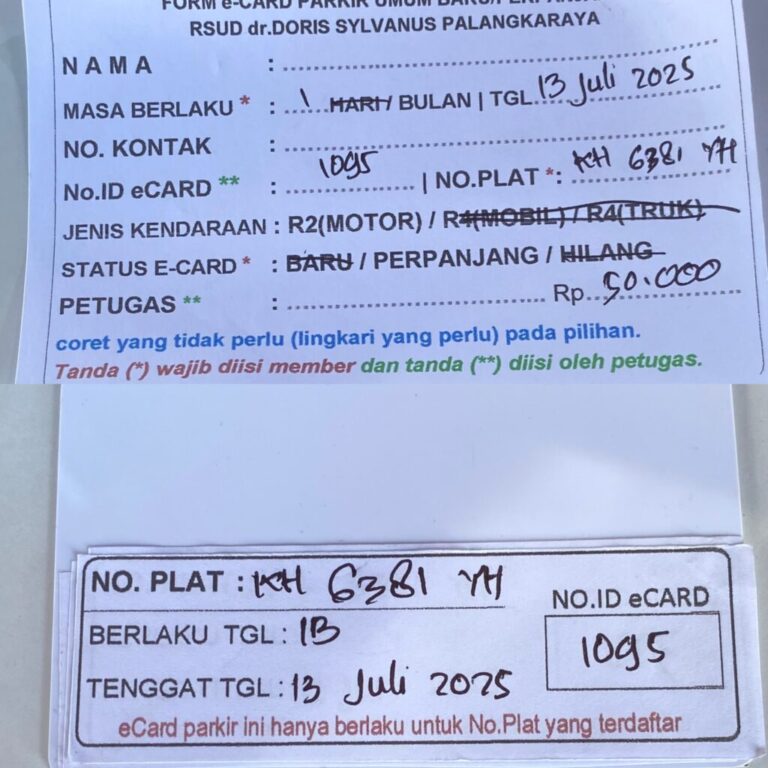 FORM e-CARD PARKIR UMUM BARU/PERPANJANG
RSUD dr.DORIS SYLVANUS PALANGKARAYA
NAMA :
MASA BERLAKU * : 1 HARI / BULAN | TGL. 13 Juli 2025
NO. KONTAK :
No.ID eCARD ** : 1095 | NO.PLAT *: KH 6381 YH
JENIS KENDARAAN : R2(MOTOR) / R4(MOBIL) / R4(TRUK)
STATUS E-CARD * : BARU / PERPANJANG / HILANG
PETUGAS ** : Rp. 50.000
coret yang tidak perlu (lingkari yang perlu) pada pilihan.
Tanda (*) wajib diisi member dan tanda (**) diisi oleh petugas.
NO. PLAT : KH 6381 YH
NO.ID eCARD
BERLAKU TGL : 1B
1095
TENGGAT TGL : 13 Juli 2025
eCard parkir ini hanya berlaku untuk No.Plat yang terdaftar